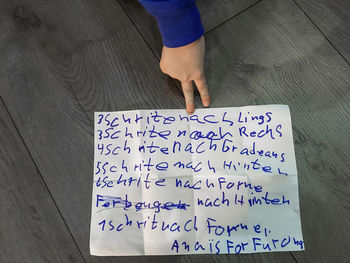 3Schritenach Lings
3Schrite nach Rechs
4Schritenach Gradeaus
5Schrite nach Hinten
6Schrite nach Forne
Ferbeugen nach Hinten
1schritnach Forne,
Anaïs For Furung